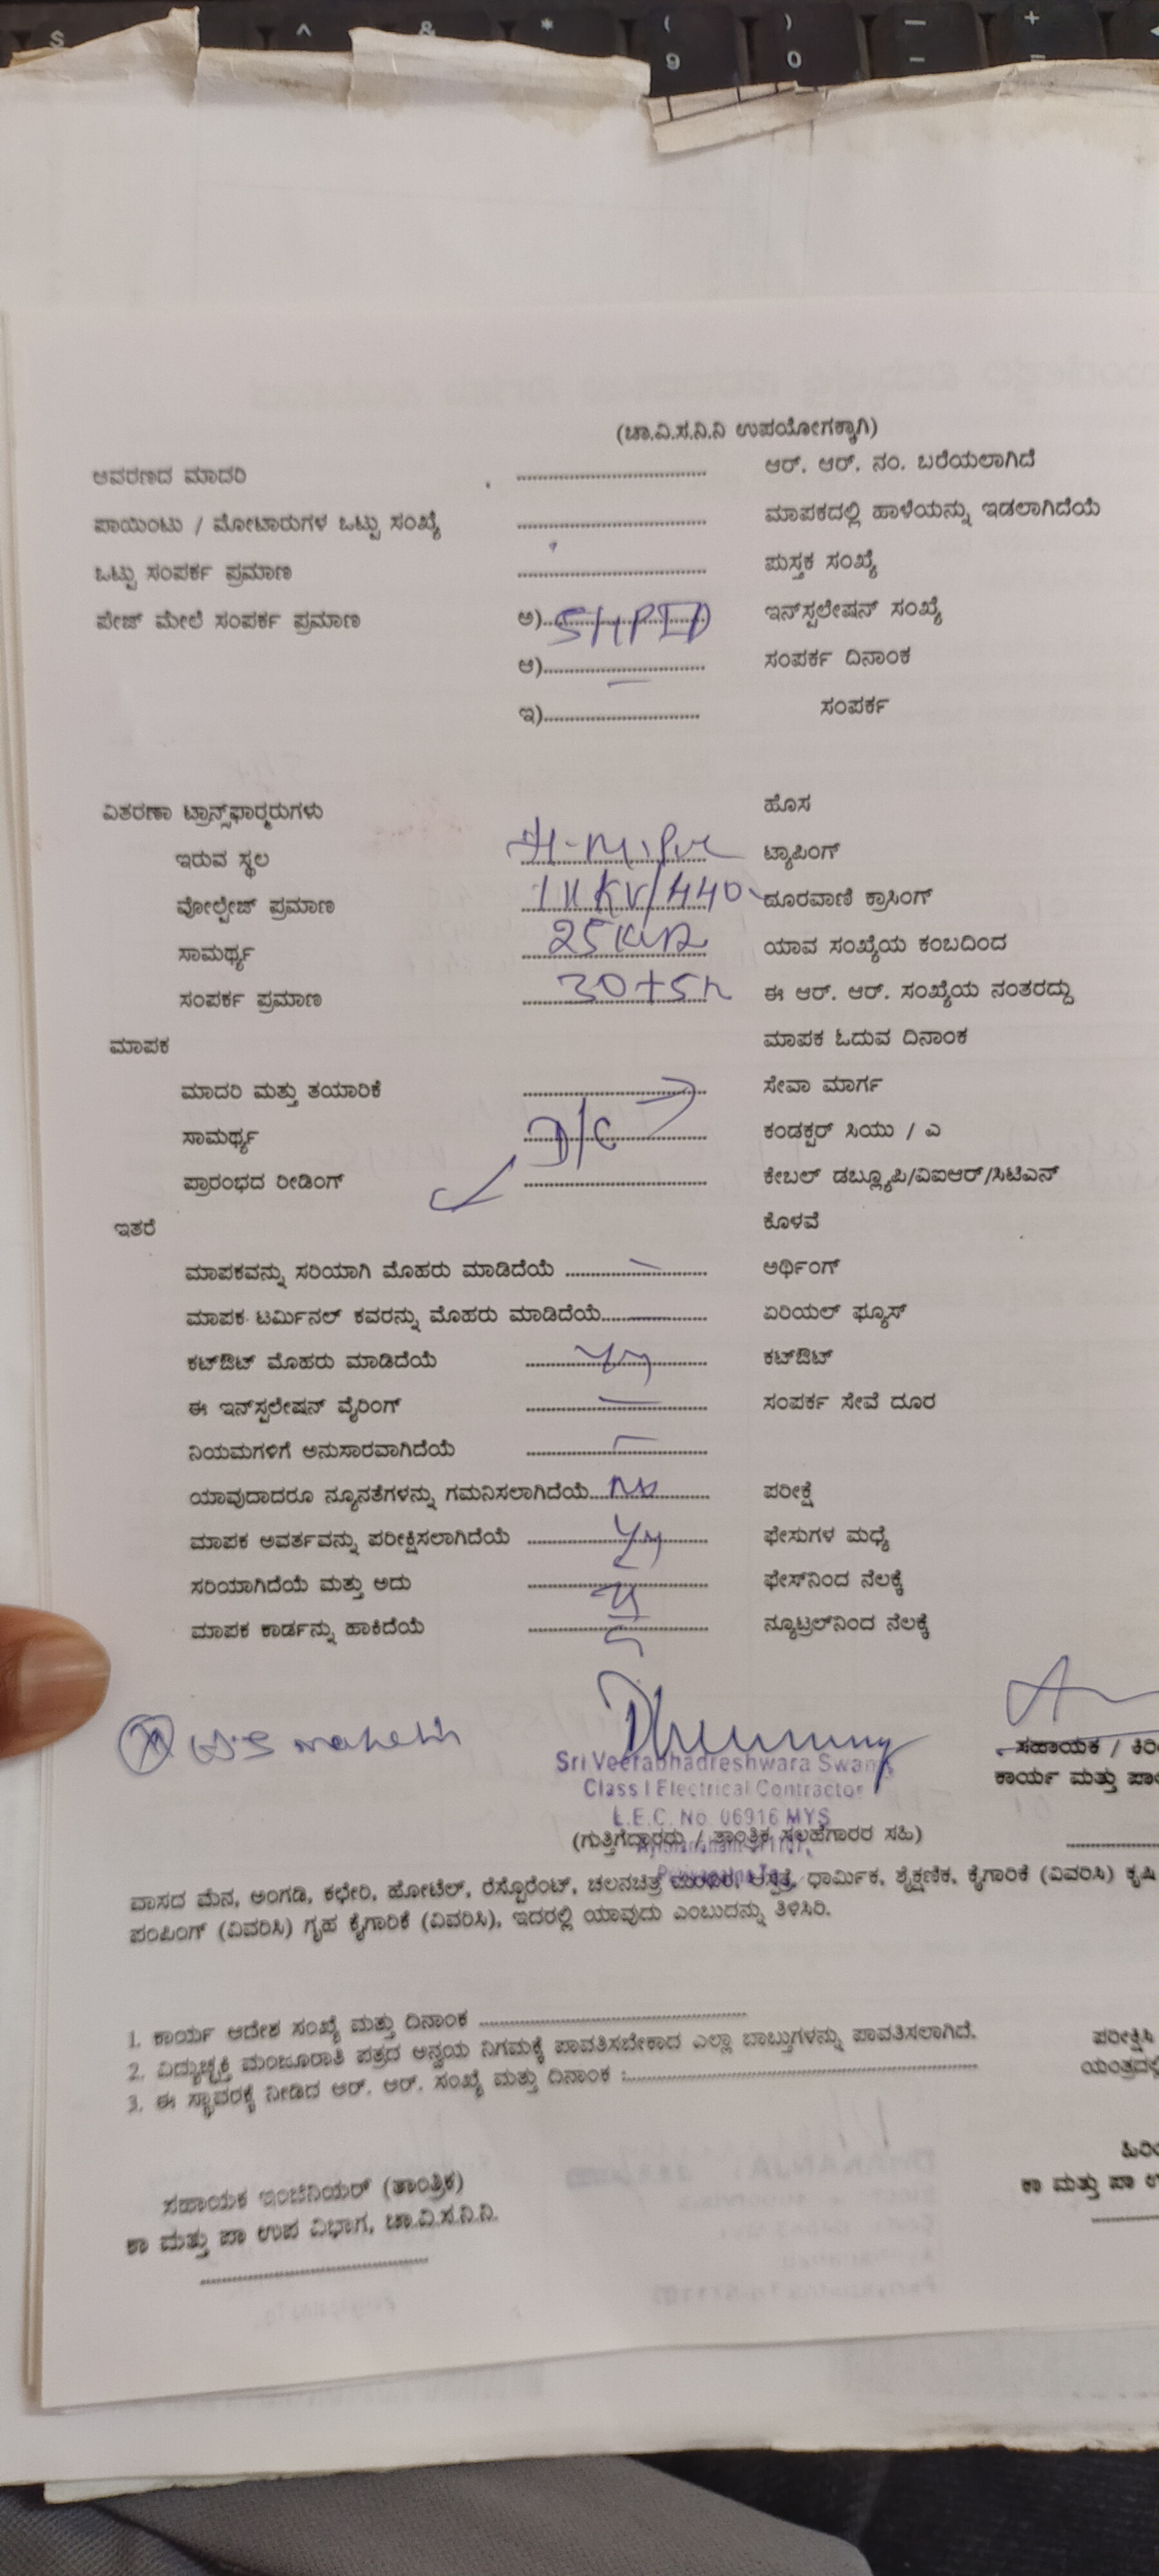 (ಚಾ.ವಿ.ಸ.ನಿ.ನಿ ಉಪಯೋಗಕ್ಕಾಗಿ)
ಆವರಣದ ಮಾದರಿ ........ ಆರ್. ಆರ್. ನಂ. ಬರೆಯಲಾಗಿದೆ
ಪಾಯಿಂಟು / ಮೋಟಾರುಗಳ ಒಟ್ಟು ಸಂಖ್ಯೆ ........ ಮಾಪಕದಲ್ಲಿ ಹಾಳೆಯನ್ನು ಇಡಲಾಗಿದೆಯೆ
ಒಟ್ಟು ಸಂಪರ್ಕ ಪ್ರಮಾಣ ........ ಪುಸ್ತಕ ಸಂಖ್ಯೆ
ಪೇಜ್ ಮೇಲೆ ಸಂಪರ್ಕ ಪ್ರಮಾಣ ಅ)........ ಇನ್‌ಸ್ಟಲೇಷನ್ ಸಂಖ್ಯೆ
ಆ)........ ಸಂಪರ್ಕ ದಿನಾಂಕ
ಇ)........ ಸಂಪರ್ಕ
ವಿತರಣಾ ಟ್ರಾನ್ಸ್‌ಫಾರ್ಮರುಗಳು ಹೊಸ
ಇರುವ ಸ್ಥಲ ........ ಟ್ಯಾಪಿಂಗ್
ವೋಲ್ಟೇಜ್ ಪ್ರಮಾಣ 11KV/440 ದೂರವಾಣಿ ಕ್ರಾಸಿಂಗ್
ಸಾಮರ್ಥ್ಯ 25 ಯಾವ ಸಂಖ್ಯೆಯ ಕಂಬದಿಂದ
ಸಂಪರ್ಕ ಪ್ರಮಾಣ 30+5 ಈ ಆರ್. ಆರ್. ಸಂಖ್ಯೆಯ ನಂತರದ್ದು
ಮಾಪಕ ಮಾಪಕ ಓದುವ ದಿನಾಂಕ
ಮಾದರಿ ಮತ್ತು ತಯಾರಿಕೆ ........ ಸೇವಾ ಮಾರ್ಗ
ಸಾಮರ್ಥ್ಯ D/C ಕಂಡಕ್ಟರ್ ಸಿಯು / ಎ
ಪ್ರಾರಂಭದ ರೀಡಿಂಗ್ ........ ಕೇಬಲ್ ಡಬ್ಲ್ಯೂಪಿ/ವಿಐಆರ್/ಸಿಟಿಎನ್
ಇತರೆ ಕೊಳವೆ
ಮಾಪಕವನ್ನು ಸರಿಯಾಗಿ ಮೊಹರು ಮಾಡಿದೆಯೆ ........ ಅರ್ಥಿಂಗ್
ಮಾಪಕ ಟರ್ಮಿನಲ್ ಕವರನ್ನು ಮೊಹರು ಮಾಡಿದೆಯೆ........ ಏರಿಯಲ್ ಫ್ಯೂಸ್
ಕಟ್‌ಔಟ್ ಮೊಹರು ಮಾಡಿದೆಯೆ ........ ಕಟ್‌ಔಟ್
ಈ ಇನ್‌ಸ್ಟಲೇಷನ್ ವೈರಿಂಗ್ ........ ಸಂಪರ್ಕ ಸೇವೆ ದೂರ
ನಿಯಮಗಳಿಗೆ ಅನುಸಾರವಾಗಿದೆಯೆ ........
ಯಾವುದಾದರೂ ನ್ಯೂನತೆಗಳನ್ನು ಗಮನಿಸಲಾಗಿದೆಯೆ No ಪರೀಕ್ಷೆ
ಮಾಪಕ ಅವರ್ತವನ್ನು ಪರೀಕ್ಷಿಸಲಾಗಿದೆಯೆ ........ ಫೇಸುಗಳ ಮಧ್ಯೆ
ಸರಿಯಾಗಿದೆಯೆ ಮತ್ತು ಅದು ........ ಫೇಸ್‌ನಿಂದ ನೆಲಕ್ಕೆ
ಮಾಪಕ ಕಾರ್ಡನ್ನು ಹಾಕಿದೆಯೆ ........ ನ್ಯೂಟ್ರಲ್‌ನಿಂದ ನೆಲಕ್ಕೆ
Sri Veerabhadreshwara Swamy ಸಹಾಯಕ / ಕಿರಿ
Class I Electrical Contractor ಕಾರ್ಯ ಮತ್ತು ಪಾಲ
L.E.C. No. 06916 MYS
(ಗುತ್ತಿಗೆದಾರರು / ತಾಂತ್ರಿಕ ಸಲಹೆಗಾರರ ಸಹಿ)
ವಾಸದ ಮನೆ, ಅಂಗಡಿ, ಕಛೇರಿ, ಹೋಟೆಲ್, ರೆಸ್ಟೋರೆಂಟ್, ಚಲನಚಿತ್ರ ಮಂದಿರ, ಆಸ್ಪತ್ರೆ, ಧಾರ್ಮಿಕ, ಶೈಕ್ಷಣಿಕ, ಕೈಗಾರಿಕೆ (ವಿವರಿಸಿ) ಕೃಷಿ
ಪಂಪಿಂಗ್ (ವಿವರಿಸಿ) ಗೃಹ ಕೈಗಾರಿಕೆ (ವಿವರಿಸಿ), ಇದರಲ್ಲಿ ಯಾವುದು ಎಂಬುದನ್ನು ತಿಳಿಸಿರಿ.
1. ಕಾರ್ಯ ಆದೇಶ ಸಂಖ್ಯೆ ಮತ್ತು ದಿನಾಂಕ ........
2. ವಿದ್ಯುಚ್ಛಕ್ತಿ ಮಂಜೂರಾತಿ ಪತ್ರದ ಅನ್ವಯ ನಿಗಮಕ್ಕೆ ಪಾವತಿಸಬೇಕಾದ ಎಲ್ಲಾ ಬಾಬ್ತುಗಳನ್ನು ಪಾವತಿಸಲಾಗಿದೆ. ಪರೀಕ್ಷಿಸಿ
3. ಈ ಸ್ಥಾವರಕ್ಕೆ ನೀಡಿದ ಆರ್. ಆರ್. ಸಂಖ್ಯೆ ಮತ್ತು ದಿನಾಂಕ :........ ಯಂತ್ರದಲ್ಲಿ
ಸಹಾಯಕ ಇಂಜಿನಿಯರ್ (ತಾಂತ್ರಿಕ) ಹಿರಿ
ಕಾ ಮತ್ತು ಪಾ ಉಪ ವಿಭಾಗ, ಚಾ.ವಿ.ಸ.ನಿ.ನಿ. ಕಾ ಮತ್ತು ಪಾ ಉ